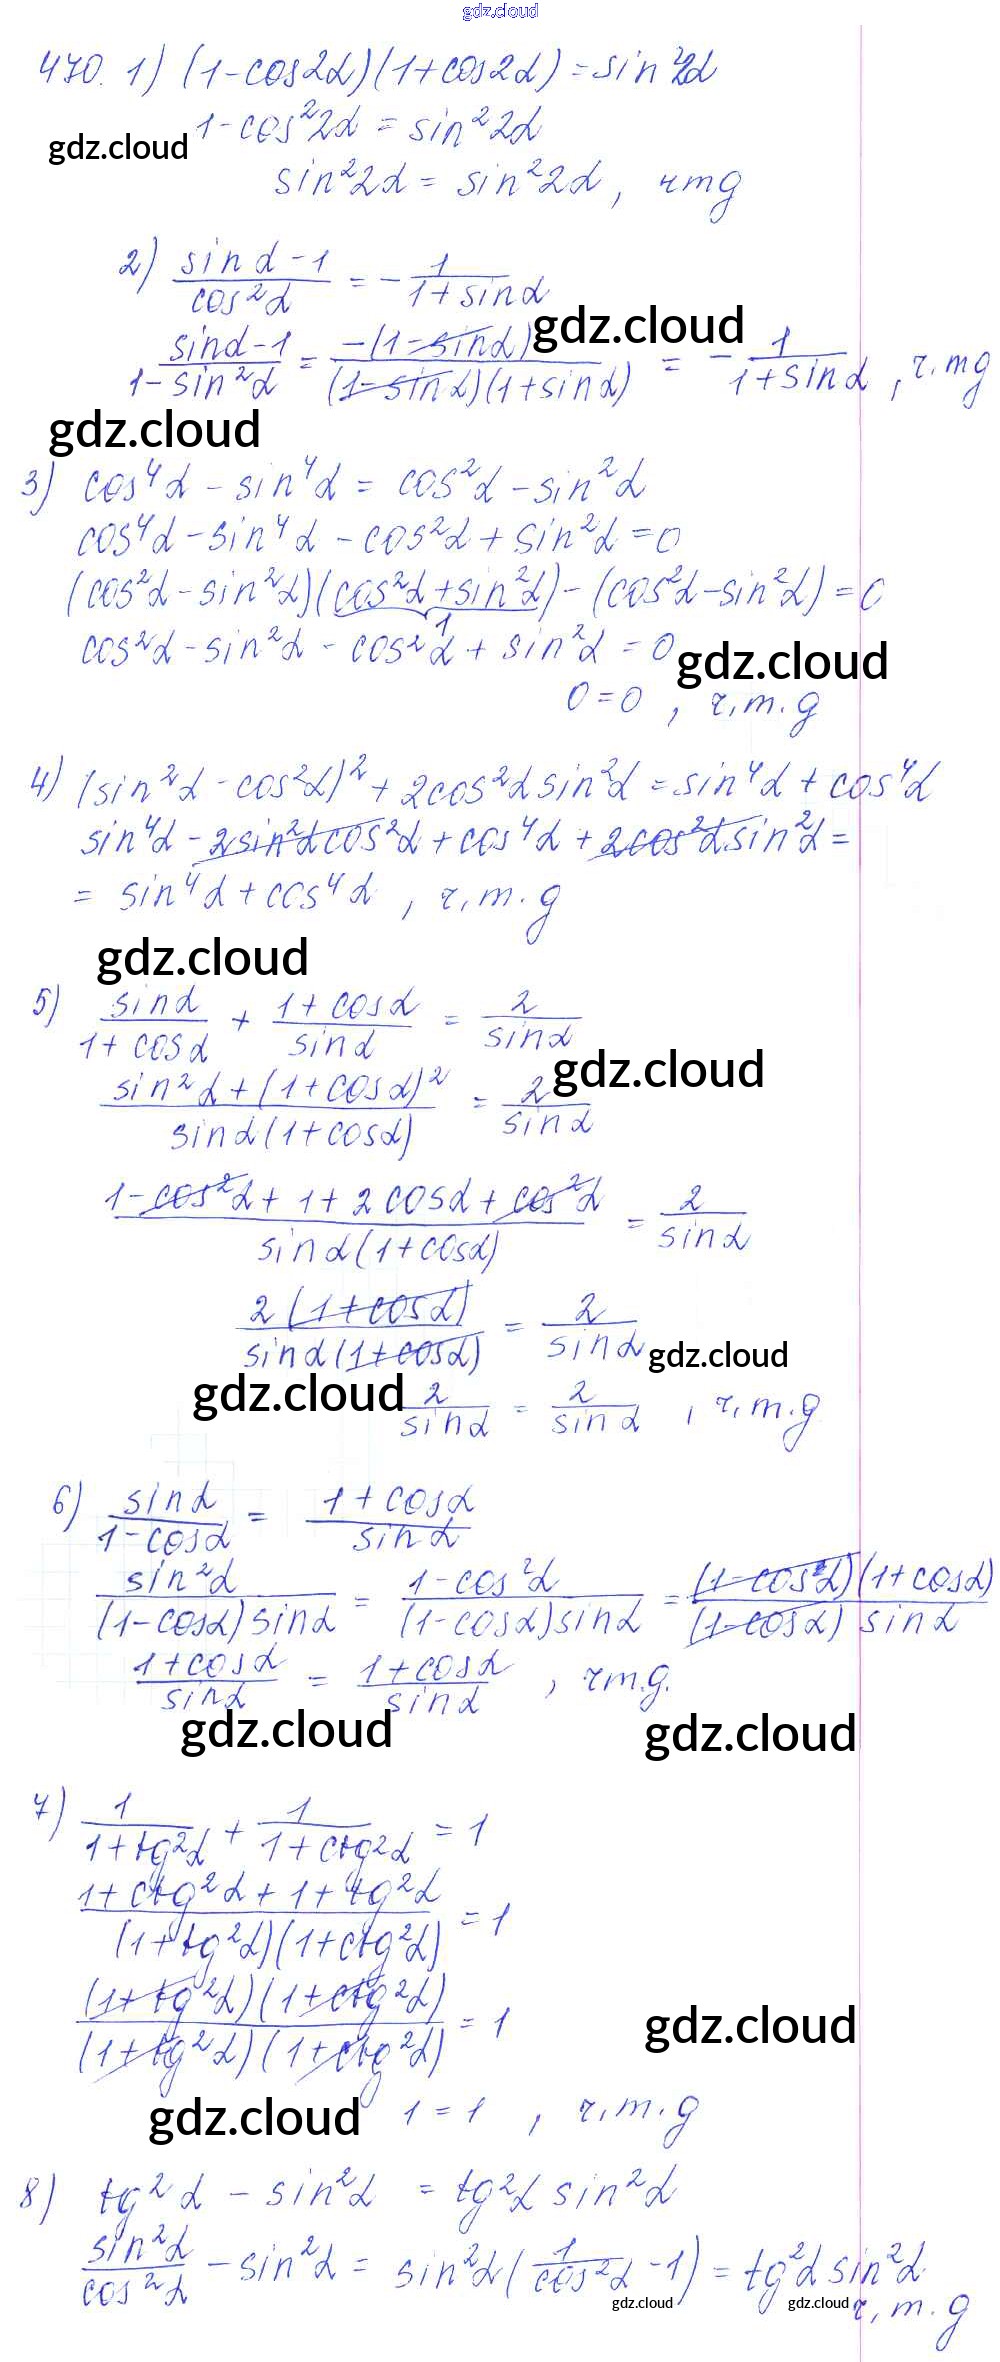 gdz.cloud
470. 1) (1-cos2α)(1+cos2α)=sin²2α
1-cos²2α = sin²2α
gdz.cloud
sin²2α = sin²2α, чтд
2) (sinα-1)/(cos²α) = -1/(1+sinα)
gdz.cloud
(sinα-1)/(1-sin²α) = (-(1-sinα))/((1-sinα)(1+sinα)) = -1/(1+sinα), ч.тд
gdz.cloud
3) cos⁴α - sin⁴α = cos²α - sin²α
cos⁴α - sin⁴α - cos²α + sin²α = 0
(cos²α - sin²α)(cos²α + sin²α) - (cos²α - sin²α) = 0
1
cos²α - sin²α - cos²α + sin²α = 0
gdz.cloud
0=0, ч.т.д
4) (sin²α - cos²α)² + 2cos²α sin²α = sin⁴α + cos⁴α
sin⁴α - 2sin²α cos²α + cos⁴α + 2cos²α sin²α =
= sin⁴α + cos⁴α, ч.т.д
gdz.cloud
5) sinα/(1+cosα) + (1+cosα)/sinα = 2/sinα
gdz.cloud
(sin²α + (1+cosα)²)/(sinα(1+cosα)) = 2/sinα
(1-cos²α + 1 + 2cosα + cos²α)/(sinα(1+cosα)) = 2/sinα
(2(1+cosα))/(sinα(1+cosα)) = 2/sinα
gdz.cloud
gdz.cloud
2/sinα = 2/sinα, ч.т.д
6) sinα/(1-cosα) = (1+cosα)/sinα
sin²α/((1-cosα)sinα) = (1-cos²α)/((1-cosα)sinα) = ((1-cosα)(1+cosα))/((1-cosα)sinα)
(1+cosα)/sinα = (1+cosα)/sinα, чт.д.
gdz.cloud
gdz.cloud
7) 1/(1+tg²α) + 1/(1+ctg²α) = 1
(1+ctg²α + 1+tg²α)/((1+tg²α)(1+ctg²α)) = 1
((1+tg²α)(1+ctg²α))/((1+tg²α)(1+ctg²α)) = 1
gdz.cloud
gdz.cloud
1 = 1, ч.т.д
8) tg²α - sin²α = tg²α sin²α
sin²α/cos²α - sin²α = sin²α(1/cos²α - 1) = tg²α sin²α
gdz.cloud
gdz.cloud
ч.т.д